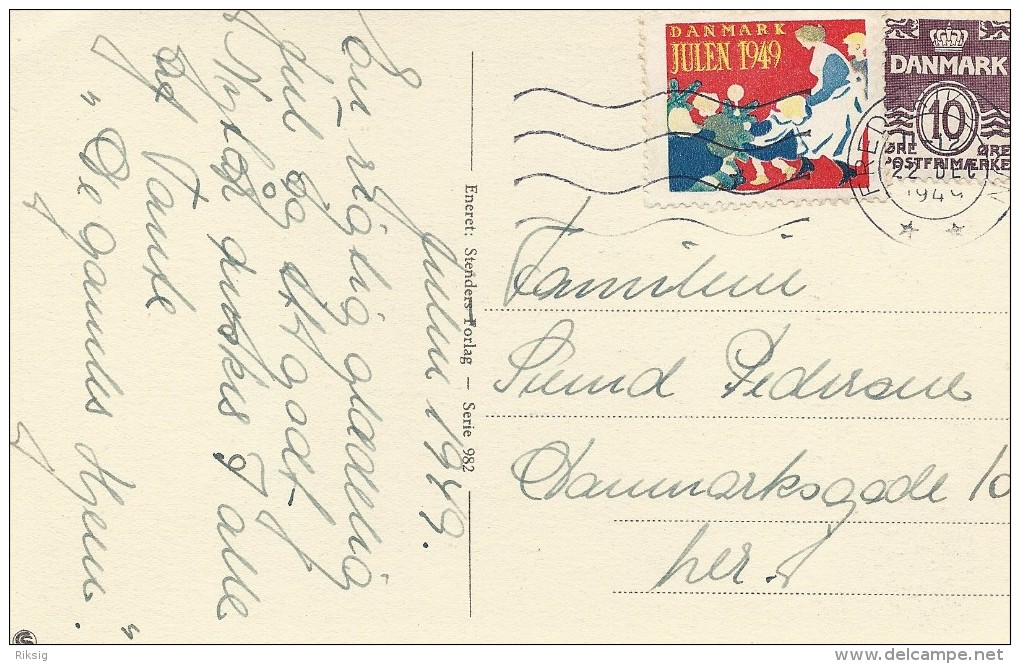 Julen 1949.
En rigtig glædelig
Jul og et godt
Nytår ønskes I alle
af Tante
"De gamles Hjem."
Eneret: Stenders Forlag — Serie 982
DANMARK
JULEN 1949
DANMARK
10
ØRE ØRE
POSTFRIMÆRKE
FRED
22 DEC
Familien
Svend Pedersen
Danmarksgade 10
her.
Riksig